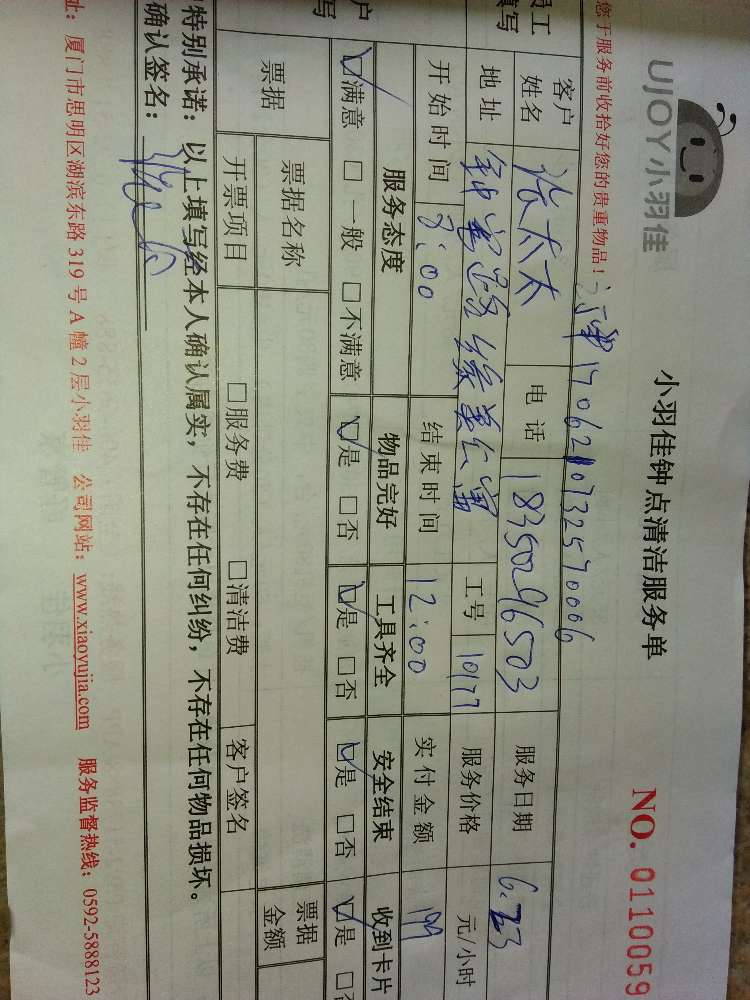 UJOY小羽佳
小羽佳钟点清洁服务单
NO. 0110059
您于服务前收拾好您的贵重物品！
1706210732570006
员工
填写
客户
姓名
张太太
电话
18350296503
服务日期
6.23
地址
工号
服务价格
元/小时
开始时间
8:00
结束时间
12:00
实付金额
199
户
写
服务态度
物品完好
工具齐全
安全结束
收到卡片
满意 □一般 □不满意
是 □否
是 □否
是 □否
是
票据
票据名称
票据
金额
开票项目
□服务费
□清洁费
客户签名
特别承诺：以上填写经本人确认属实，不存在任何纠纷，不存在任何物品损坏。
确认签名：
址：厦门市思明区湖滨东路 319 号 A 幢 2 层小羽佳 公司网站：www.xiaoyujia.com 服务监督热线：0592-5888123